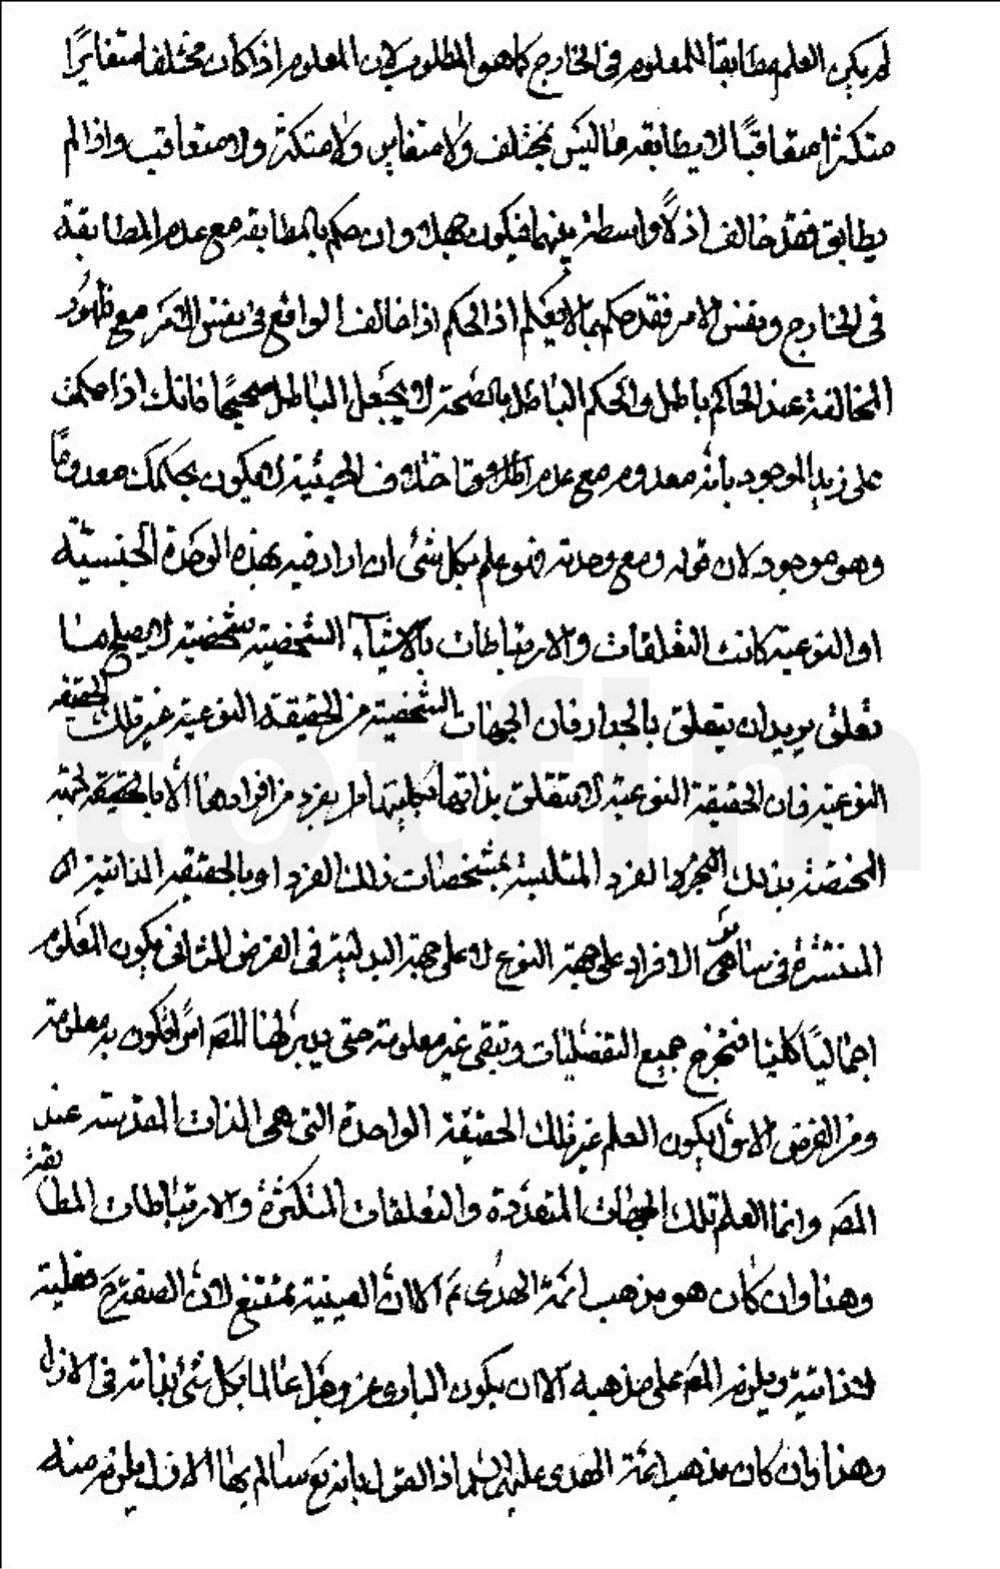 لم يكن العلم مطابقا للمعلوم في الخارج كما هو المطلوب لان المعلوم اذا كان مختلفا متغايرًا
متكثرا متعاقبًا لا يطابقه ما ليس بمختلف ولا متغاير ولا متكثر ولا متعاقب واذا لم
يطابق فقد خالف اذ لا واسطة بينهما فيكون جهلا وان حكم بالمطابقة مع عدم المطابقة
في الخارج ونفس الامر فقد حكم بما لا يعلم اذ الحكم اذا خالف الواقع في نفس الامر مع ظهور
المخالفة عند الحاكم باطل والحكم الباطل بالصحة لا يجعل الباطل صحيحًا فانك اذا حكمت
على زيد الموجود بانه معدوم مع عدم اختلاف الحيثية لا يكون بحكمك معدومًا
وهو موجود لان قوله ومع وحدته فهو علم بكل شئ ان اراد فيه بهذه الوحدة الجنسية
او النوعية كانت التعلقات والارتباطات بالاشياء الشخصية شخصية لا يصلح منها
تعلق يريد ان يتعلق بالجدار فان الجهات الشخصية من الحقيقة النوعية غير تلك الحقيقة
النوعية فان الحقيقة النوعية لا تتعلق بذاتها بكليتها بفرد من افرادها الا بالحقيقة
المختصة بذلك الفرد المتلبسة بمشخصات ذلك الفرد او بالحقيقة الذاتية
المنتشرة في سائر الافراد على جهة النوع لا على جهة البدلية في الفرض الثاني يكون المعلوم
اجماليًا كليا فتخرج جميع التفصيليات وتبقى غير معلومة حتى يدبر لها المصَ امرًا تكون به معلومة
ومن الفرض الاول يكون العلم غير تلك الحقيقة الواحدة التي هي الذات المقدسة عند
المصَ وانما العلم تلك الجهات المتعددة والتعلقات المتكثرة والارتباطات المطابقة
وهذا وان كان هو مذهب ائمة الهدى عَم الا ان العينية تمتنع لان الصفة فعلية
لا ذاتية ويلزم المصَ على مذهبه الا ان يكون الباري عز وجل عالما بكل شئ بذاته في الازل
وهذا وان كان مذهب ائمة الهدى عليهم السلام اذ القول بانه تع عالم بها الازل يلزم منه